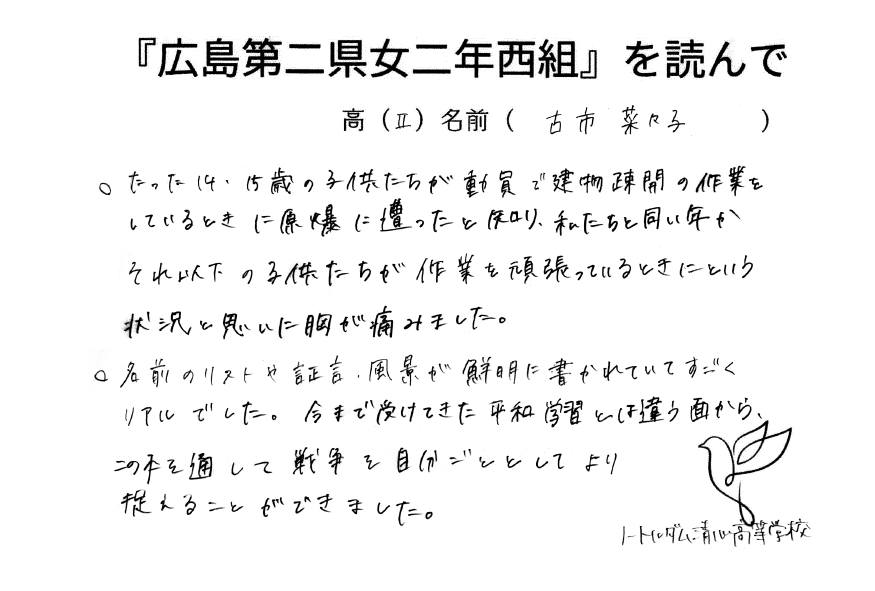 『広島第二県女二年西組』を読んで
高（Ⅱ）名前（ 古市 菜々子 ）
○ たった14・15歳の子供たちが動員で建物疎開の作業を
しているときに原爆に遭ったと知り、私たちと同い年か
それ以下の子供たちが作業を頑張っているときにという
状況と思いに胸が痛みました。
○ 名前のリストや証言、風景が鮮明に書かれていてすごく
リアルでした。今まで受けてきた平和学習とは違う面から、
この本を通して戦争を自分ごととしてより
捉えることができました。
ノートルダム清心高等学校